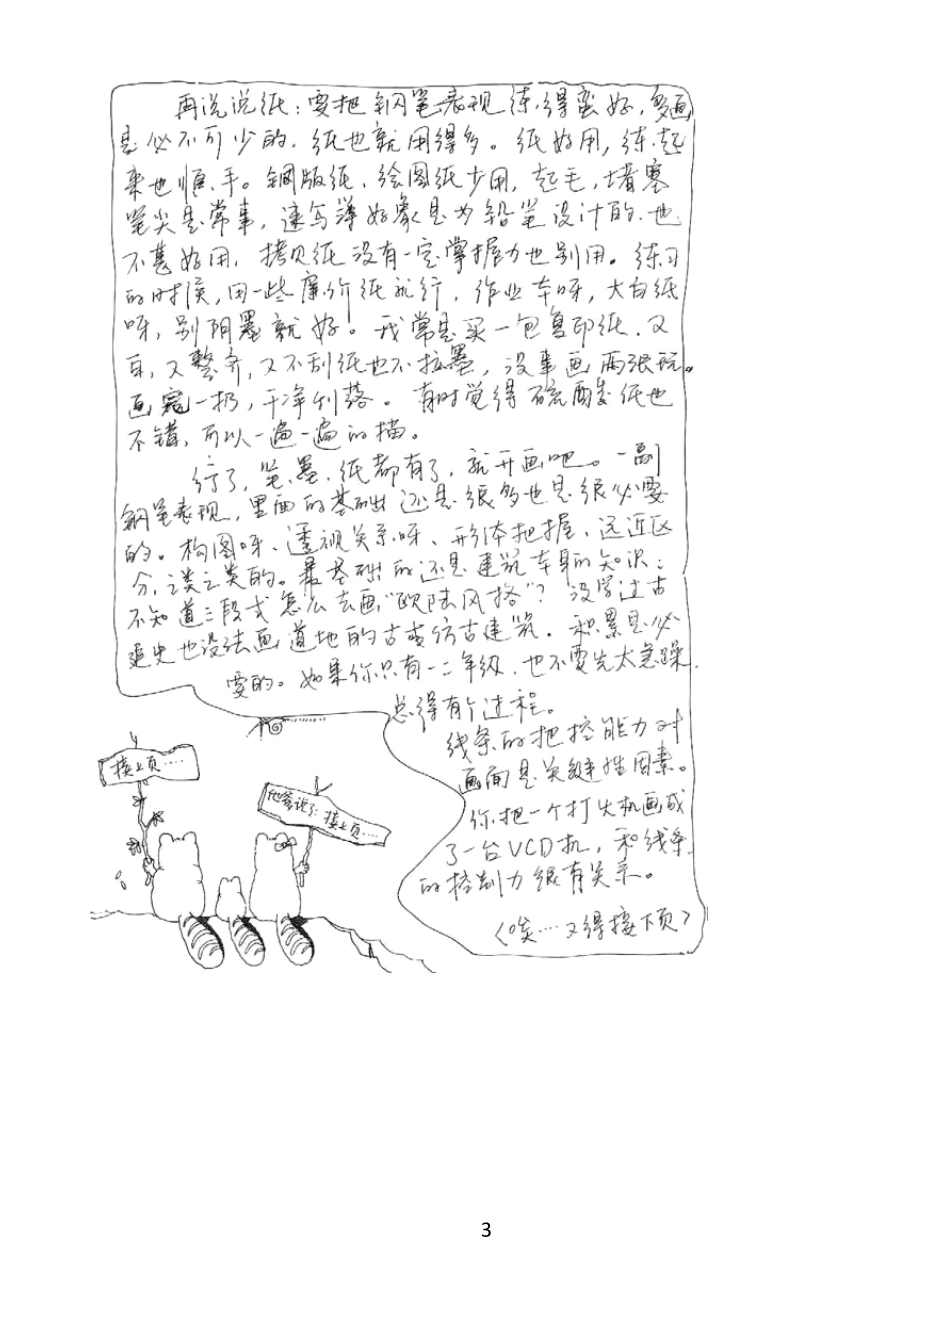 再说说纸：要把钢笔表现练得蛮好，多画
是必不可少的．纸也就用得多。纸好用，练起
来也顺手。铜版纸、绘图纸少用，起毛，堵塞
笔尖是常事，速写薄好象是为铅笔设计的．也
不甚好用，拷贝纸没有一定掌握力也别用。练习
的时候，用一些廉价纸就行．作业本呀，大白纸
呀，别阴墨就好。我常是买一包复印纸．又
白，又整齐，又不刮纸也不拉墨，没事画两张玩。
画完一扔，干净利落。有时觉得硫酸纸也
不错，可以一遍一遍的描。
行了，笔、墨、纸都有了，就开画吧。一副
钢笔表现，里面的基础还是很多也是很必要
的。构图呀、透视关系呀、形体把握、远近区
分，之类之类的。最基础的还是建筑本身的知识：
不知道三段式怎么去画“欧陆风格”？没学过古
建史也没法画道地的古或仿古建筑．积累是必
要的。如果你只有一二年级．也不要先太急躁．
总得有个过程。
线条的把控能力对
画面是关键性因素。
你把一个打火机画成
了一台VCD机，和线条
的控制力很有关系。
（唉…又得接下页）
接上页……
他爸说了：接上页……
3